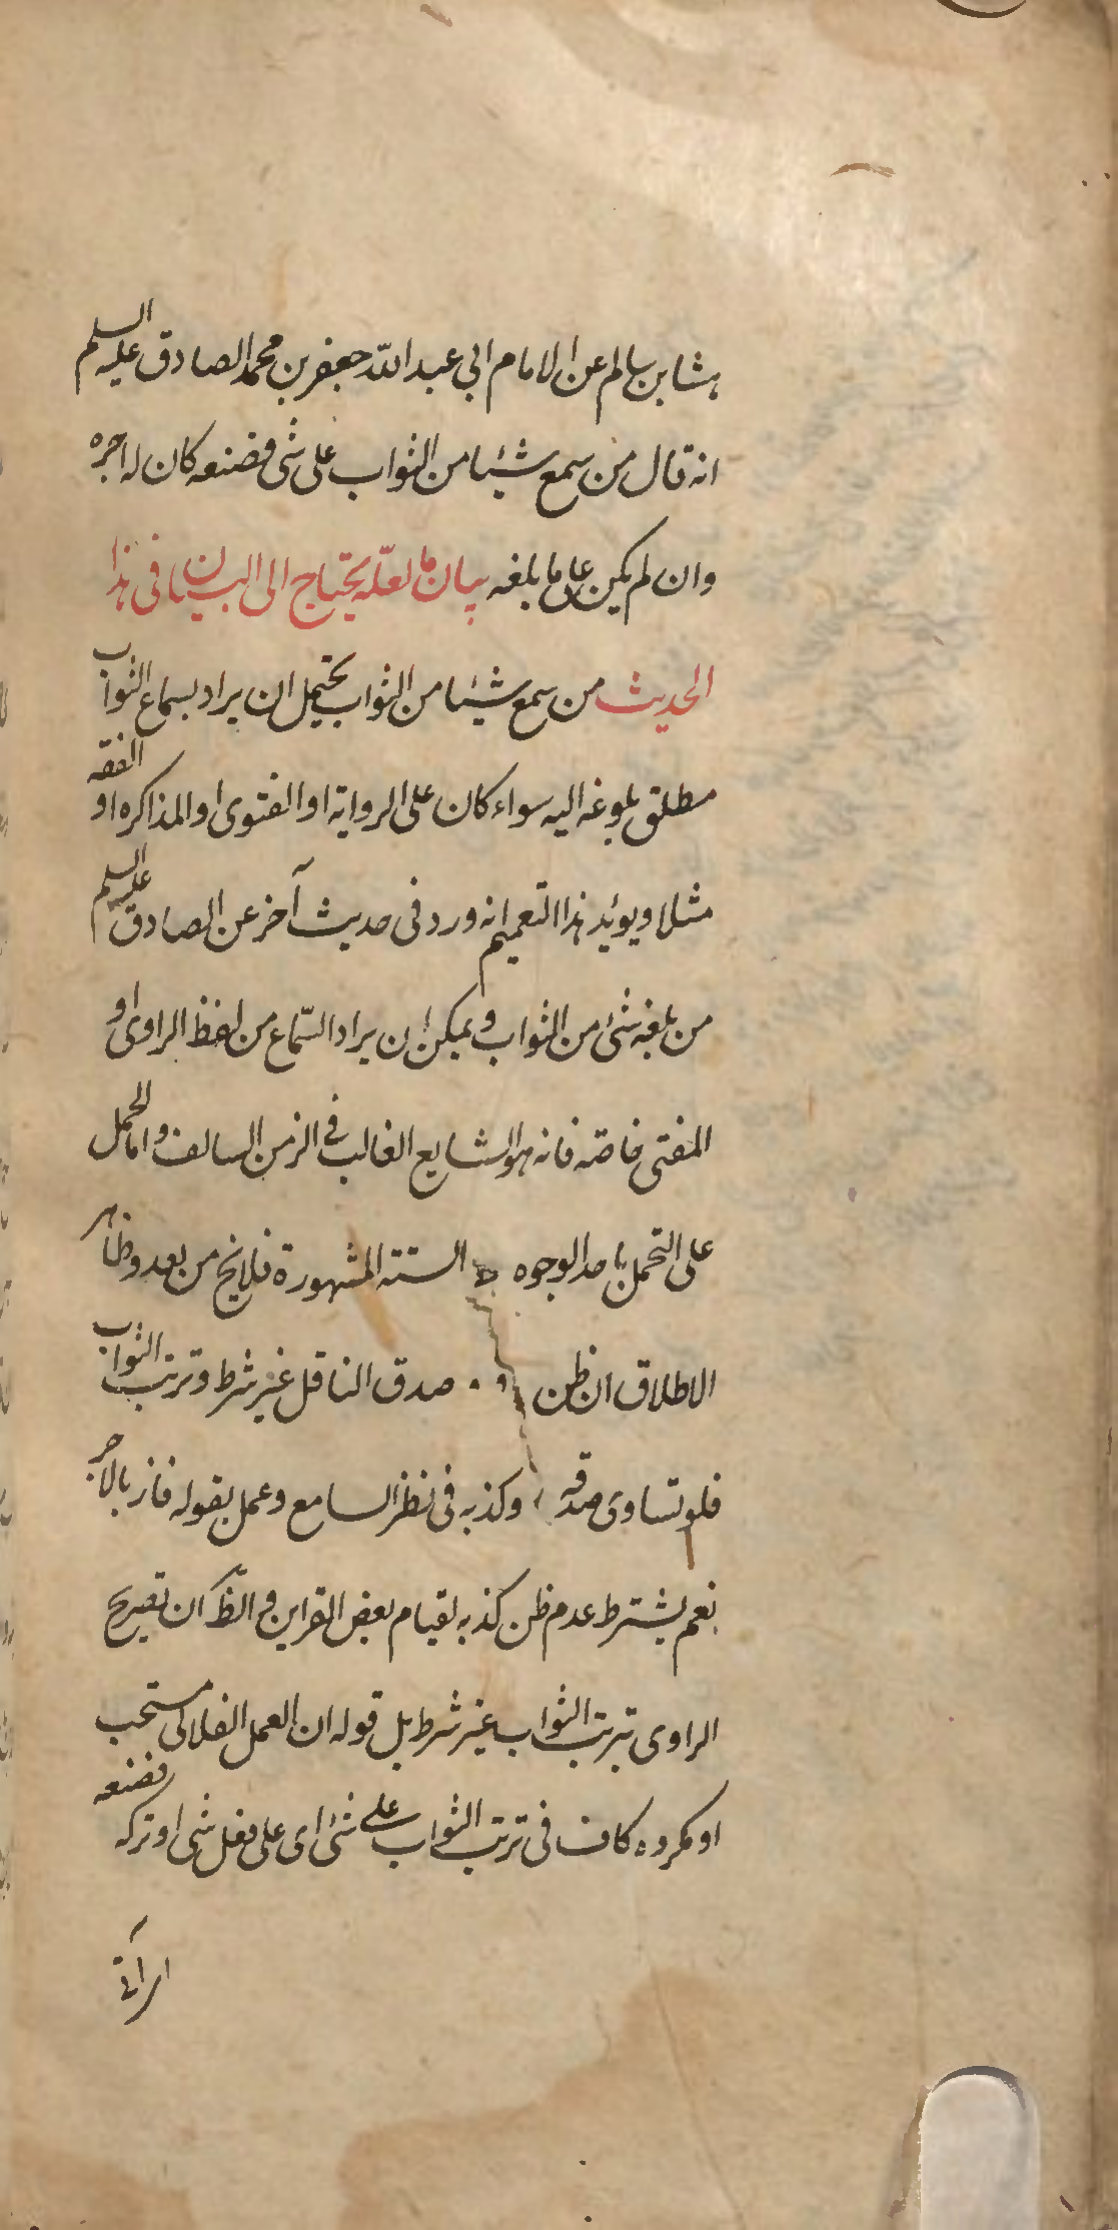 هشام بن سالم عن الامام ابي عبد الله جعفر بن محمد الصادق عليه السلم
انه قال من سمع شيئا من الثواب على شئ فصنعه كان له اجره
وان لم يكن على ما بلغه بيان ما لعلّه يحتاج الى البيان فى هذا
الحديث من سمع شيئا من الثواب يحتمل ان يراد بسماع الثواب
مطلق بلوغه اليه سواء كان على الرواية او الفتوى او المذاكره او الفقه
مثلا ويؤيد هذا التعميم انه ورد فى حديث آخر عن الصادق عليه السلم
من بلغه شئ من الثواب ويمكن ان يراد السّماع من لفظ الراوى او
المفتى خاصّه فانه هو الشايع الغالب فى الزمن السالف واما الحمل
على التحمل باحد الوجوه الستته المشهورة فلا يخ من بعد وظاهر
الاطلاق ان ظن صدق الناقل غير شرط وترتب الثواب
فلو تساوى صدقه وكذبه فى نظر السامع وعمل بقوله فاز بالاجر
نعم يشترط عدم ظن كذبه لقيام بعض القراين والظّ ان تصريح
الراوى بترتب الثواب غير شرط بل قوله ان العمل الفلانى مستحب
او مكروه كاف فى ترتب الثواب على شئ اى على فعل شئ او تركه فصنعه